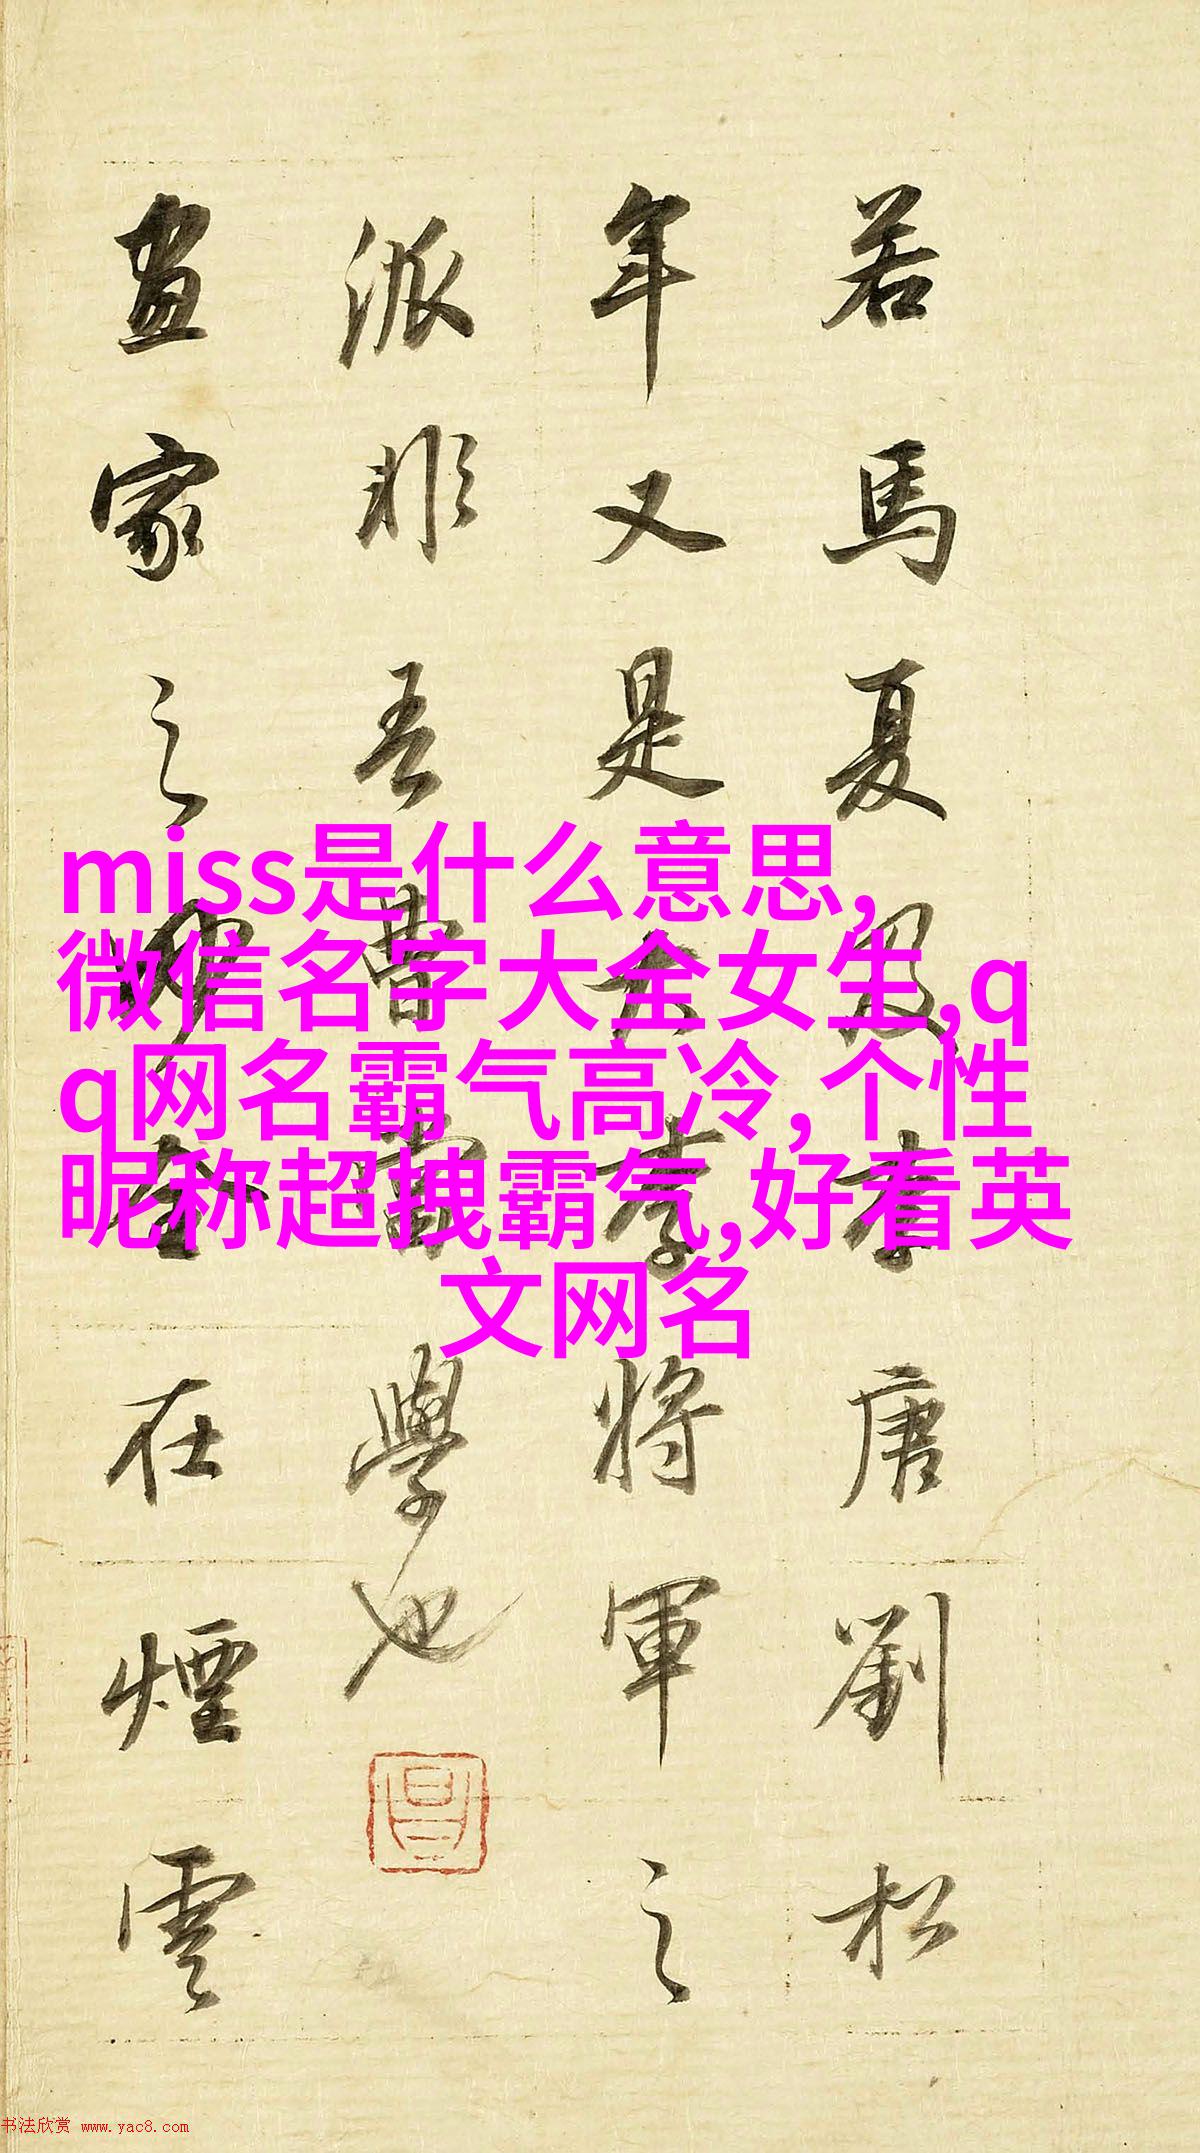 若馬夏及李唐劉松
年又是大李將軍之
派非吾曹當學也
畫家之妙全在煙雲
miss是什么意思,
微信名字大全女生,q
q网名霸气高冷,个性
昵称超拽霸气,好看英
文网名
书法欣赏 www.yac8.com